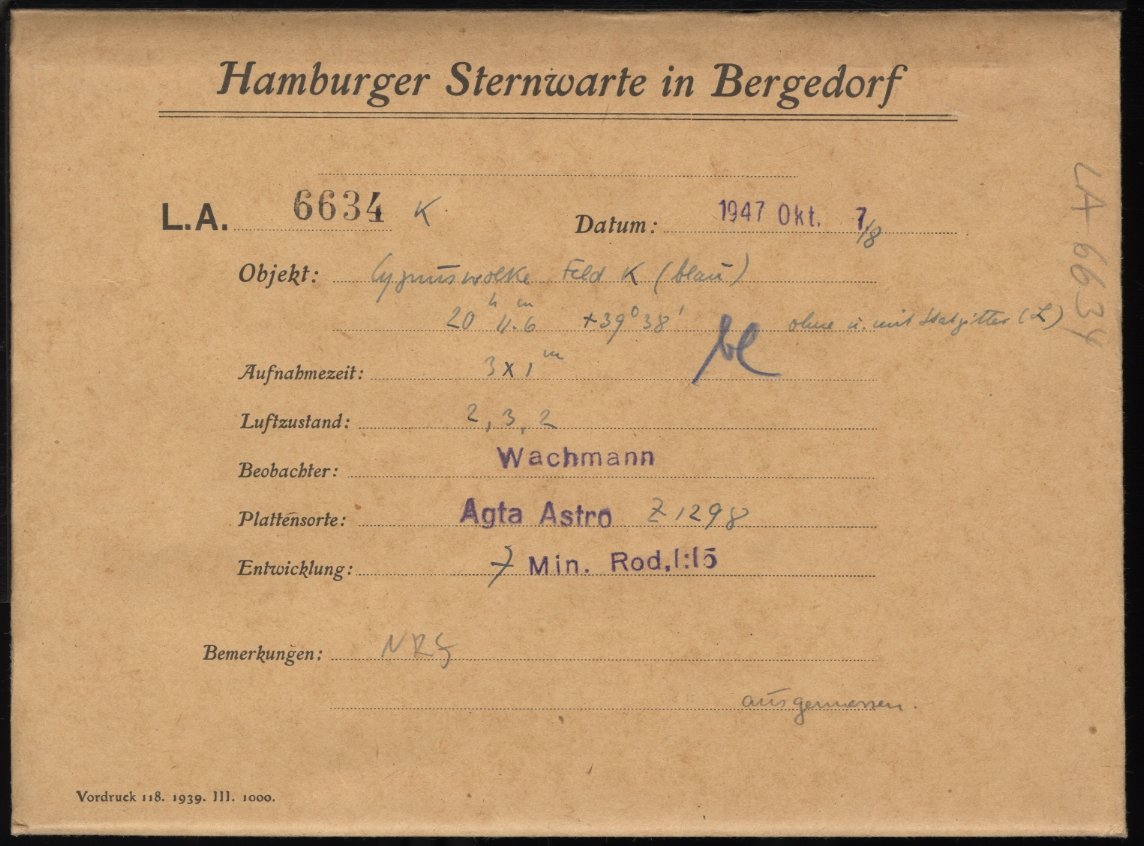 Hamburger Sternwarte in Bergedorf
L.A. 6634 K Datum: 1947 Okt. 7/8
Objekt: Cygnuswolke Feld K (blau)
20h 11.6m +39° 38' ohne u. mit (L)
bl
Aufnahmezeit: 3x1m
Luftzustand: 2, 3, 2
Beobachter: Wachmann
Plattensorte: Agfa Astro Z 1298
Entwicklung: 7 Min. Rod, 1:15
Bemerkungen:
ausgemessen.
Vordruck 118. 1939. III. 1000.
LA 6634